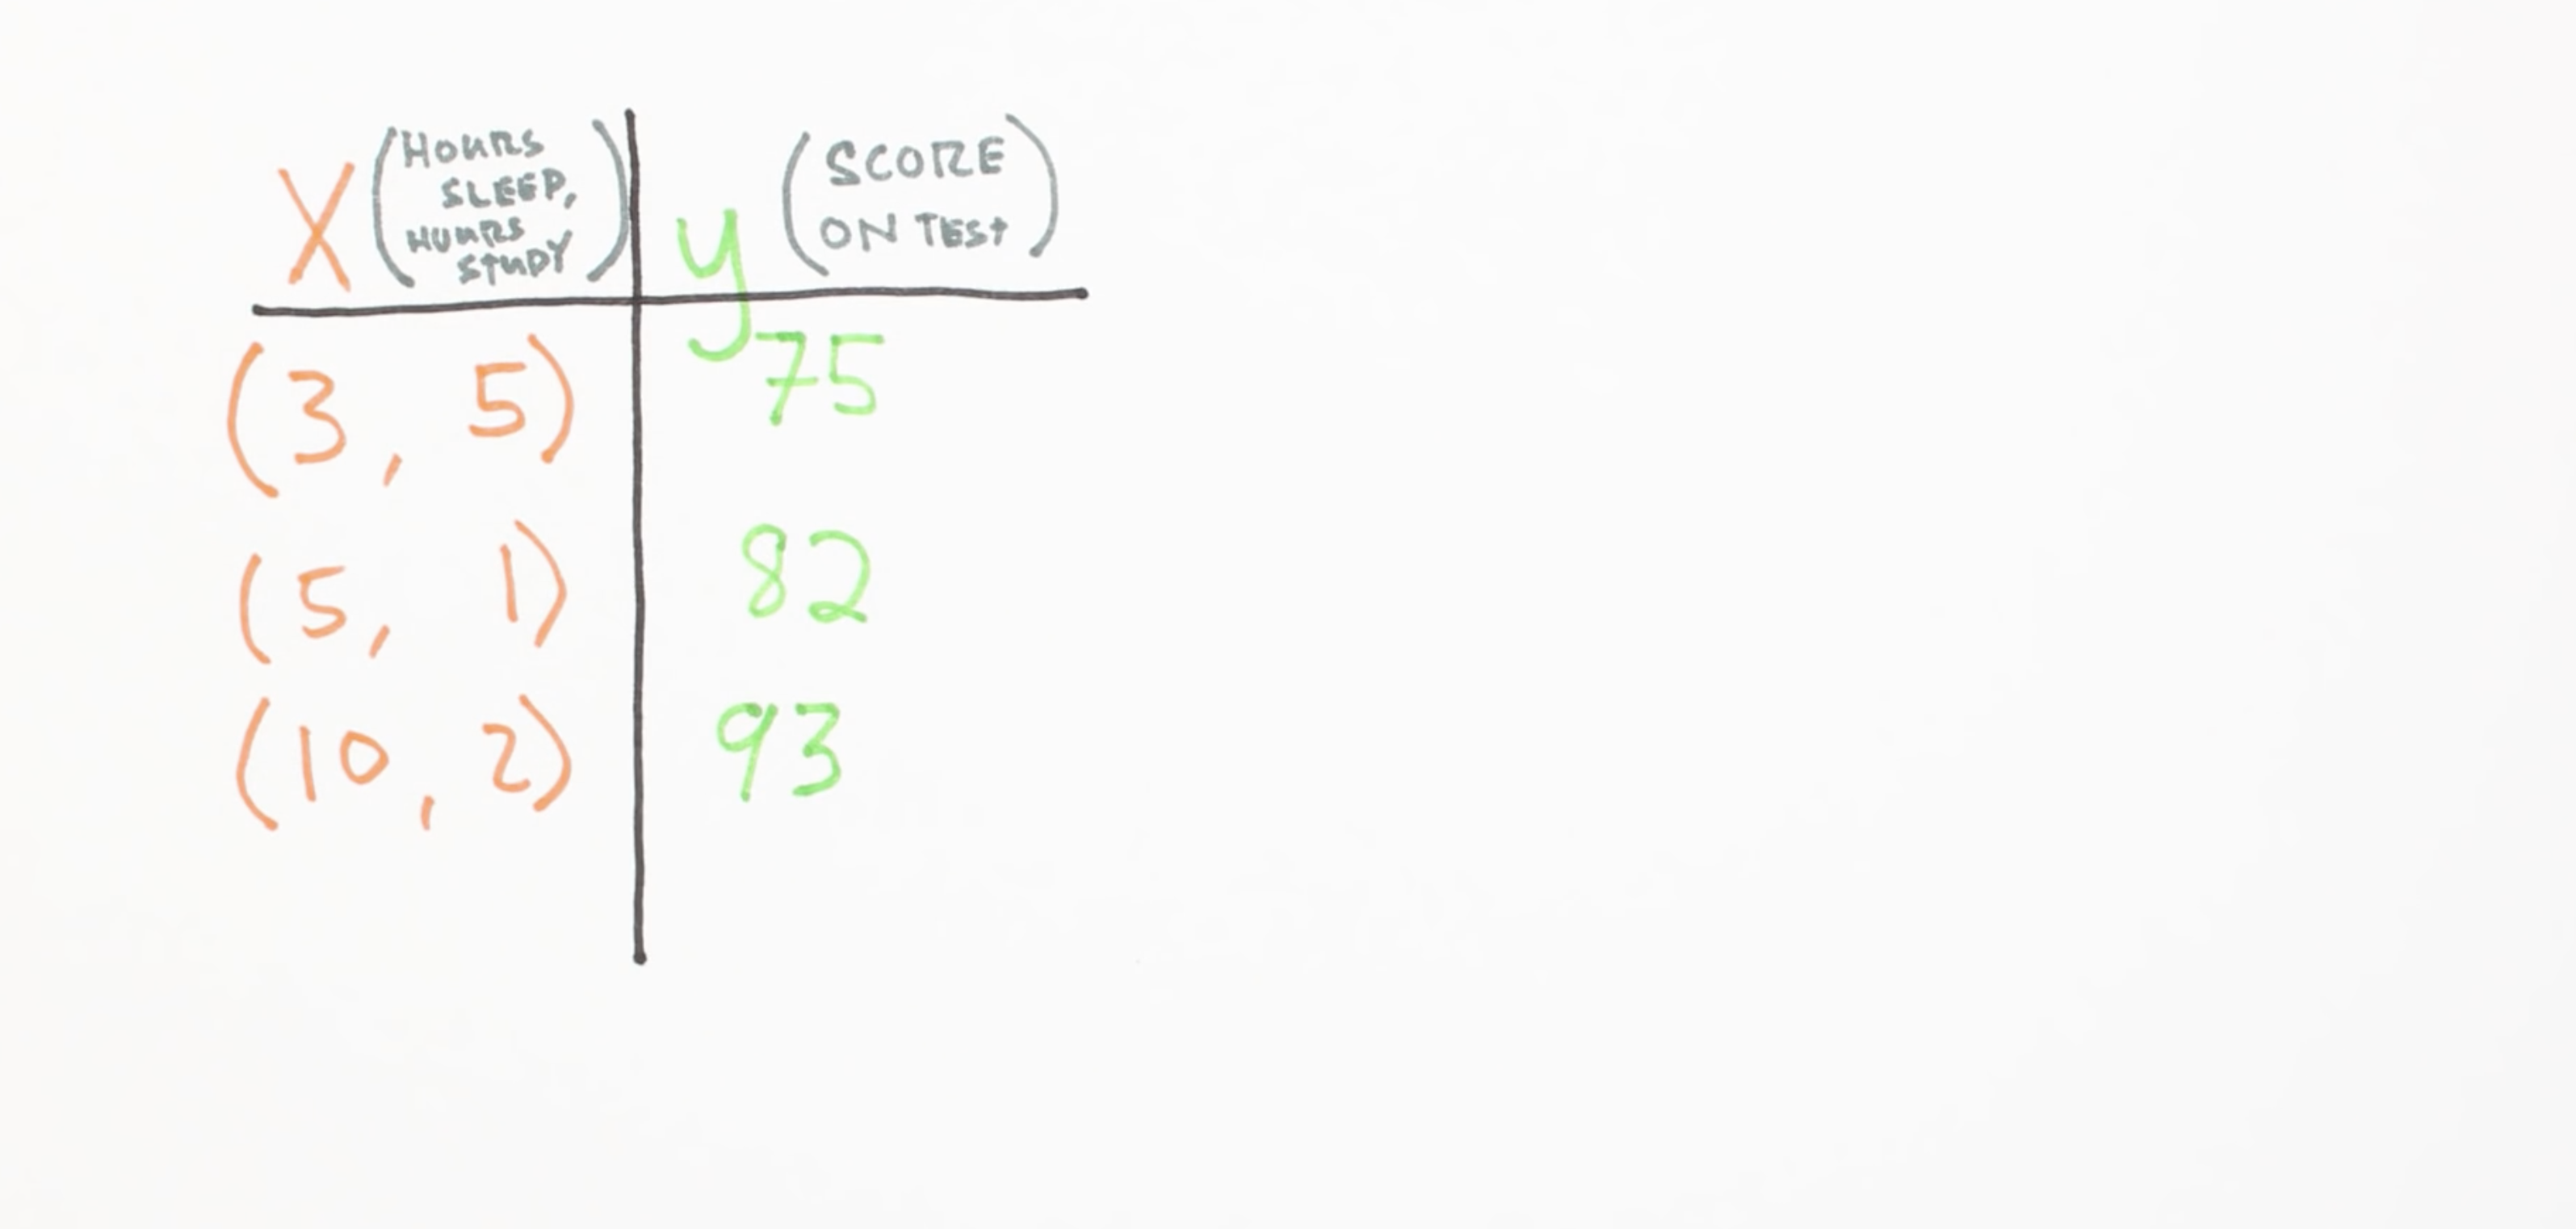 X (HOURS SLEEP, HOURS STUDY)
y (SCORE ON TEST)
(3, 5) 75
(5, 1) 82
(10, 2) 93